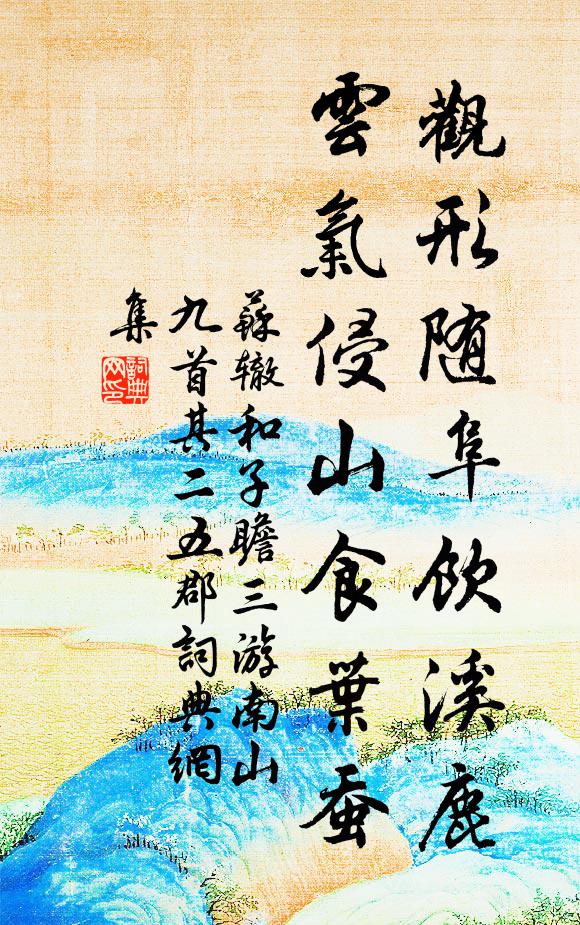 觀形随阜飲溪鹿
雲氣侵山食葉蚕
蘇辙和子瞻三游南山
九首其二五郡詞典網
集
詞典
网印